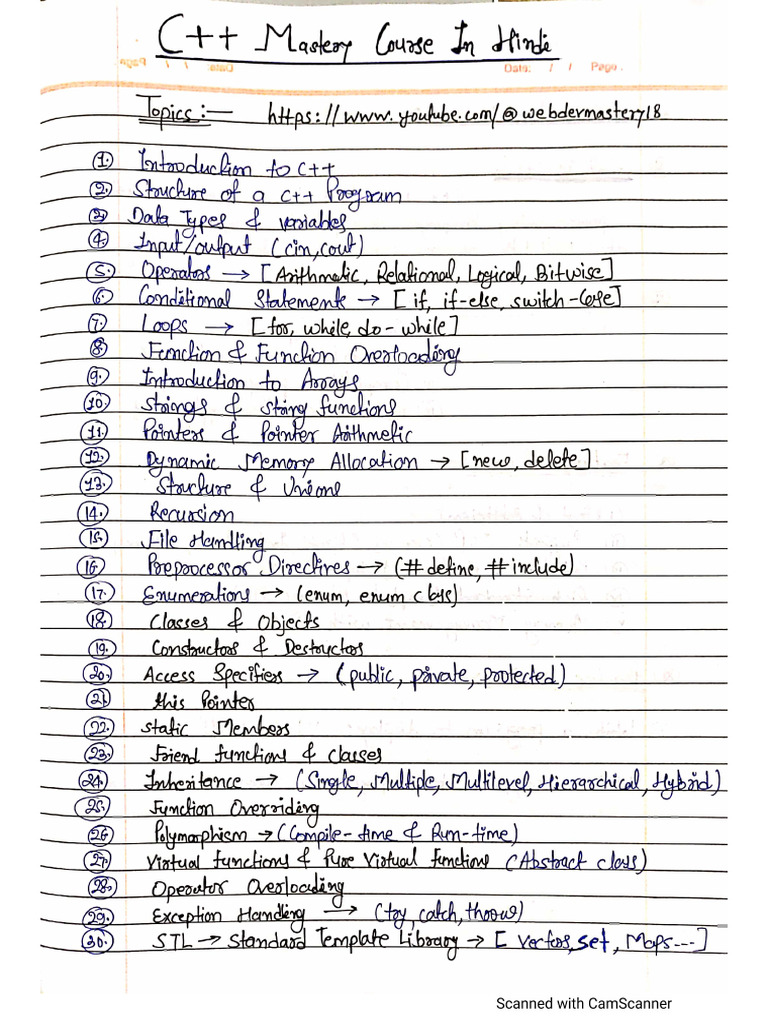 C++ Mastery Course In Hindi
Date: / / Page.
Topics :— https://www.youtube.com/@webdermastery18
1. Introduction to C++
2. Structure of a C++ Program
3. Data Types & variables
4. Input/output (cin, cout)
5. Operators → [Arithmetic, Relational, Logical, Bitwise]
6. Conditional Statements → [if, if-else, switch-Case]
7. Loops → [for, while, do-while]
8. Function & Function Overloading
9. Introduction to Arrays
10. Strings & string functions
11. Pointers & Pointer Arithmetic
12. Dynamic Memory Allocation → [new, delete]
13. Structure & Unions
14. Recursion
15. File Handling
16. Preprocessor Directives → (#define, #include)
17. Enumerations → (enum, enum class)
18. Classes & Objects
19. Constructors & Destructors
20. Access Specifiers → (public, private, protected)
21. this Pointer
22. Static Members
23. Friend functions & classes
24. Inheritance → (Single, Multiple, Multilevel, Hierarchical, Hybrid)
25. Function Overriding
26. Polymorphism → (Compile-time & Run-time)
27. Virtual functions & Pure Virtual Functions (Abstract class)
28. Operator Overloading
29. Exception Handling → (try, catch, throw)
30. STL → Standard Template Library → [Vectors, set, Maps---]
Scanned with CamScanner